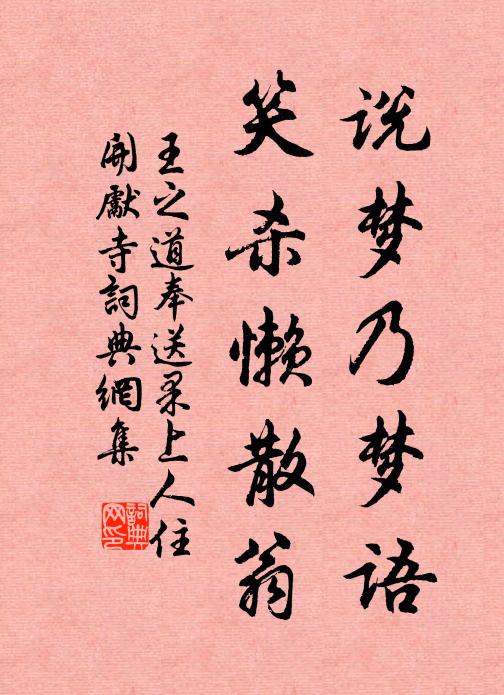 说梦乃梦语
笑杀懒散翁
王之道奉送果上人住
开献寺詞典網集
詞典
网印